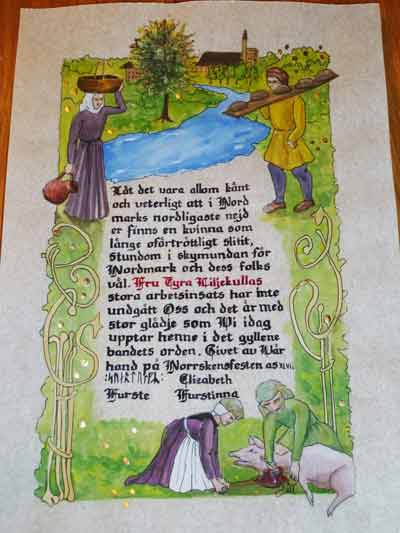 Låt det vara allom känt
och veterligt att i Nord
marks nordligaste nejd
er finns en kvinna som
länge oförtröttligt slitit,
stundom i skymundan för
Nordmark och dess folks
väl. Fru Tyra Liljekullas
stora arbetsinsats har inte
undgått Oss och det är med
stor glädje som Vi idag
upptar henne i det gyllene
bandets orden. Givet av Vår
hand på Norrskensfesten as
Elizabeth
Furste Furstinna